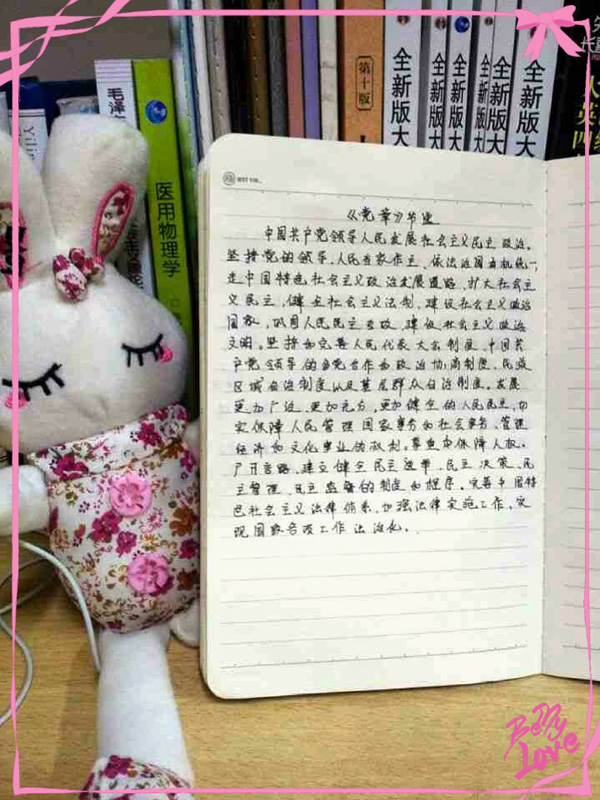 毛泽
医用物理学
第十版
全新版大
全新版大
全新版大
全新版大
全新版大
全新版大
《党章》节选
中国共产党领导人民发展社会主义民主政治。
坚持党的领导、人民当家作主、依法治国有机统一,
走中国特色社会主义政治发展道路,扩大社会主
义民主,健全社会主义法制,建设社会主义法治
国家,巩固人民民主专政,建设社会主义政治
文明。坚持和完善人民代表大会制度、中国共
产党领导的多党合作和政治协商制度、民族
区域自治制度以及基层群众自治制度。发展
更加广泛、更加充分、更加健全的人民民主,切
实保障人民管理国家事务和社会事务、管理
经济和文化事业的权利。尊重和保障人权。
广开言路,建立健全民主选举、民主决策、民
主管理、民主监督的制度和程序。完善中国特
色社会主义法律体系,加强法律实施工作,实
现国家各项工作法治化。
Betty
Love